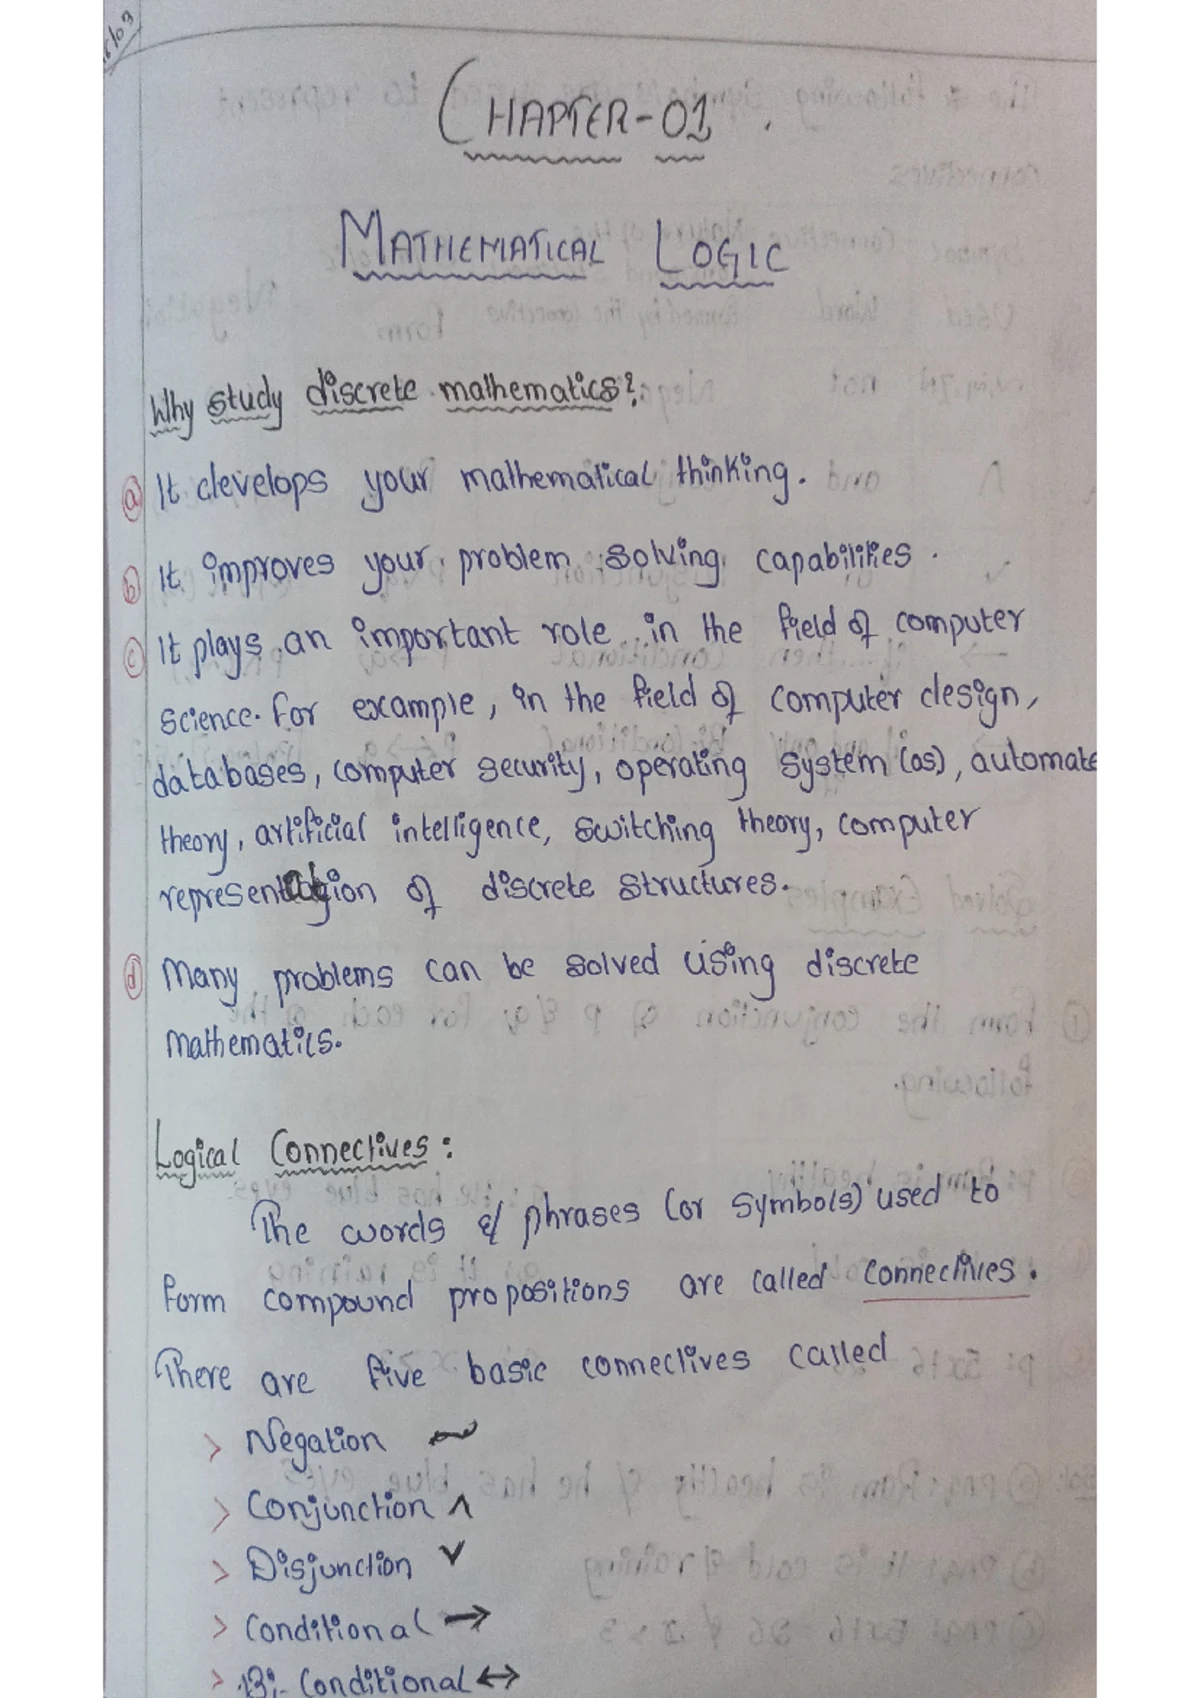 CHAPTER-01.
MATHEMATICAL LOGIC
Why study discrete mathematics?
(a) It develops your mathematical thinking.
(b) It improves your problem solving capabilities.
(c) It plays an important role in the field of computer
science. For example, in the field of computer design,
databases, computer security, operating system (os), automate
theory, artificial intelligence, switching theory, computer
representation of discrete structures.
(d) Many problems can be solved using discrete
mathematics.
Logical Connectives:
The words & phrases (or symbols) used to
form compound propositions are called connectives.
There are five basic connectives called
> Negation ~
> Conjunction ∧
> Disjunction ∨
> Conditional →
> Bi-Conditional ↔